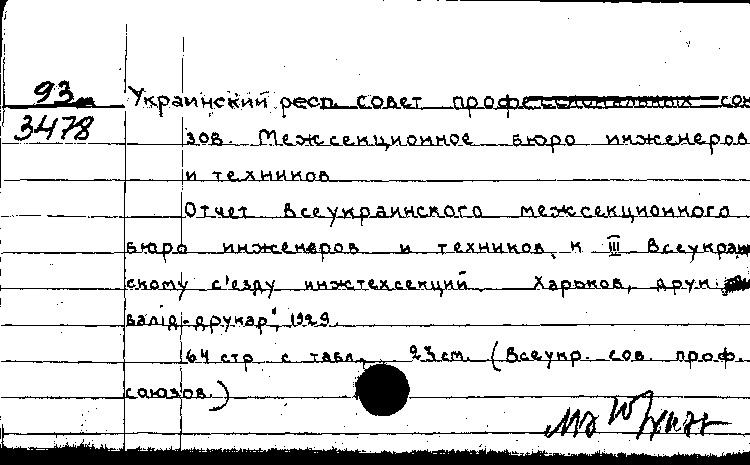 93
Украинский респ. совет профессиональных сою
3478
зов. Межсекционное бюро инженеров
и техников
Отчет Всеукраинского межсекционного
бюро инженеров и техников к III Всеукраин
скому с'езду инжтехсекций. Харьков, друк.
валід-друкар", 1929.
64 стр. с табл., 23 см. (Всеукр. сов. проф.
союзов.)